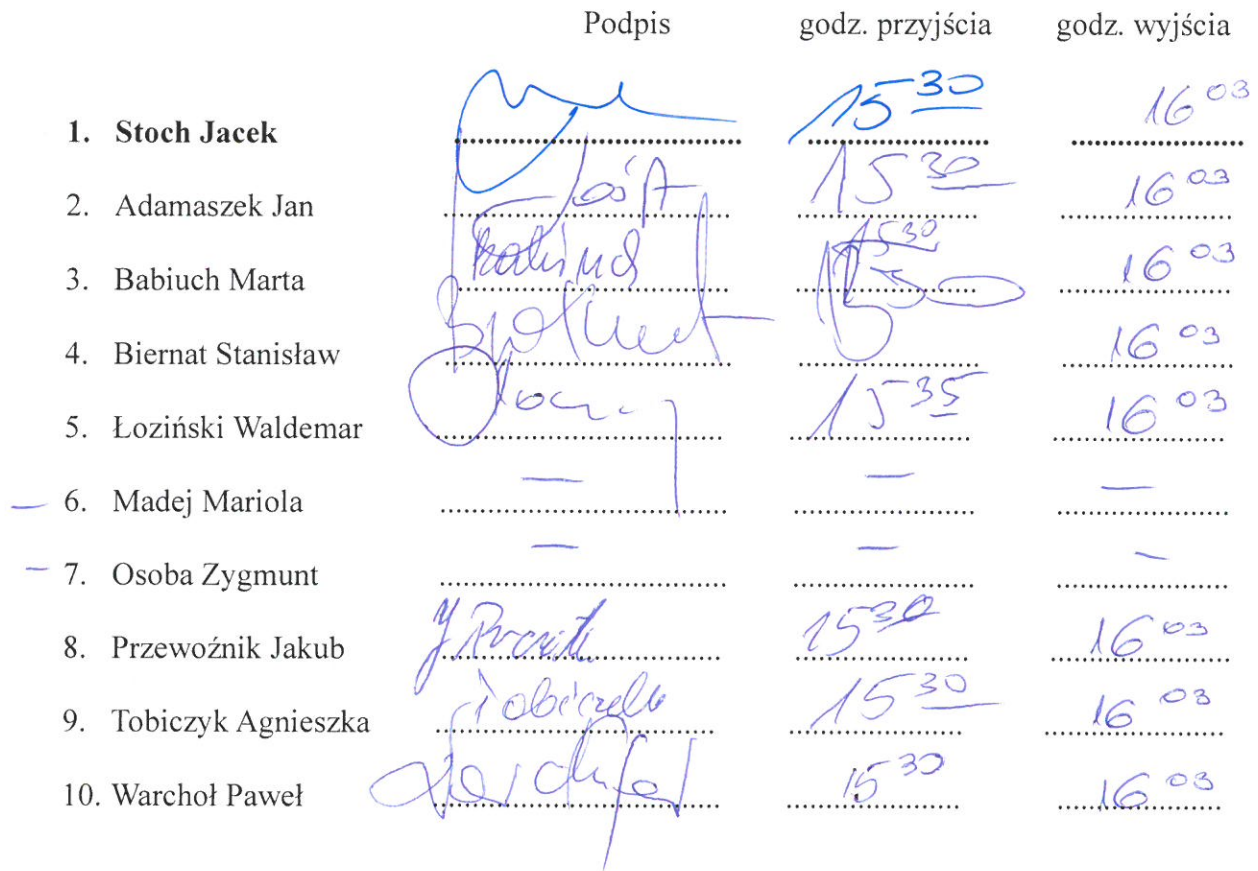 Podpis godz. przyjścia godz. wyjścia
1. Stoch Jacek 15 30 16 03
2. Adamaszek Jan 15 30 16 03
3. Babiuch Marta 15 30 16 03
4. Biernat Stanisław 16 03
5. Łoziński Waldemar 15 35 16 03
— 6. Madej Mariola — — —
— 7. Osoba Zygmunt — — —
8. Przewoźnik Jakub 15 30 16 03
9. Tobiczyk Agnieszka 15 30 16 03
10. Warchoł Paweł 15 30 16 03